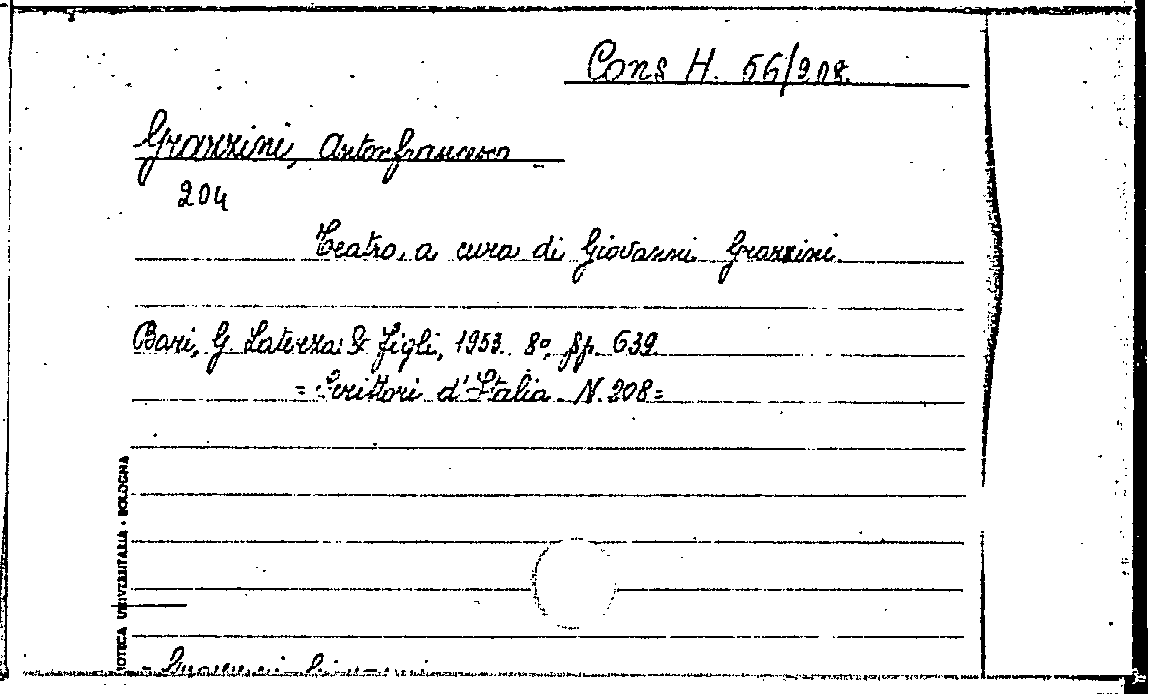 Cons H. 56/208.
Grazzini, Antonfrancesco
204
Teatro, a cura di Giovanni Grazzini.
Bari, G. Laterza & Figli, 1953. 8°, pp. 639
= Scrittori d'Italia. N. 208=
IOTECA UNIVERSITARIA • BOLOGNA